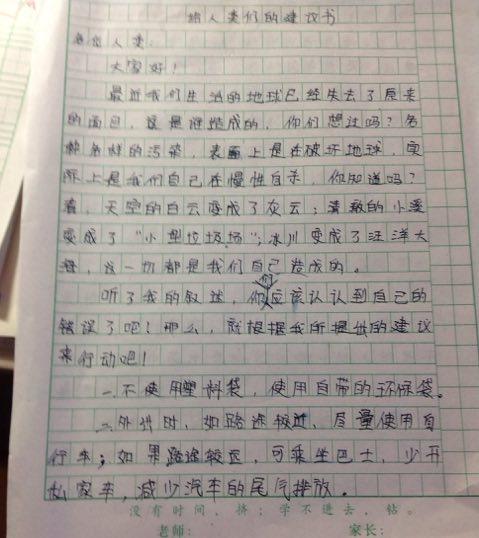 给人类们的建议书
各位人类:
大家好!
最近我们生活的地球已经失去了原来
的面目,这是谁造成的,你们想过吗?各
种各样的污染,表面上是在破坏地球,实
际上是我们自己在慢性自杀,你知道吗?
看,天空的白云变成了灰云;清澈的小溪
变成了“小型垃圾场”;冰川变成了汪洋大
海,这一切都是我们自己造成的。
听了我的叙述,你们应该认认到自己的
错误了吧!那么,就根据我所提出的建议
来行动吧!
一.不使用塑料袋,使用自带的环保袋。
二.外出时,如路途较近,尽量使用自
行车;如果路途较远,可乘坐巴士,少开
私家车,减少汽车的尾气排放。
没有时间,挤;学不进去,钻。
老师: 家长: